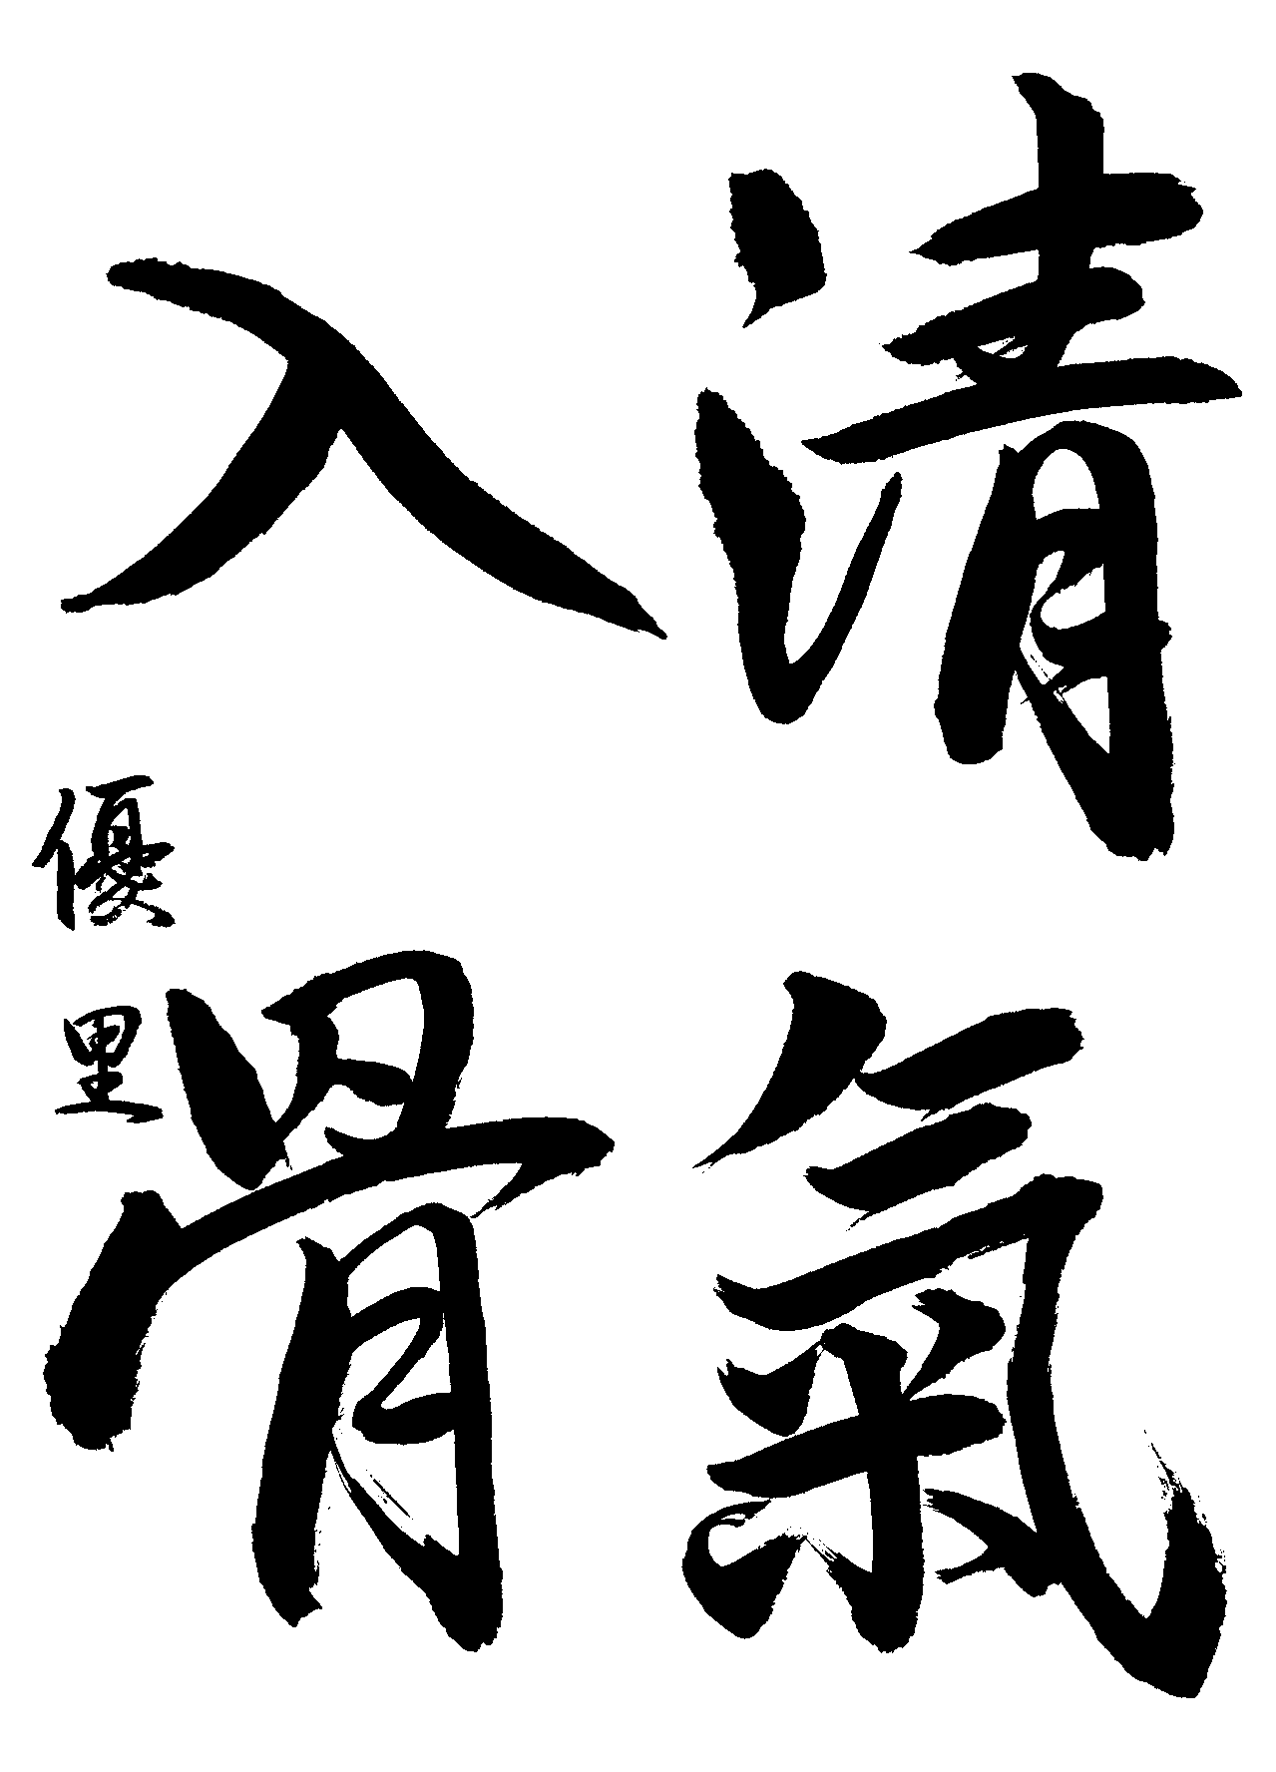 清氣
入骨
優里